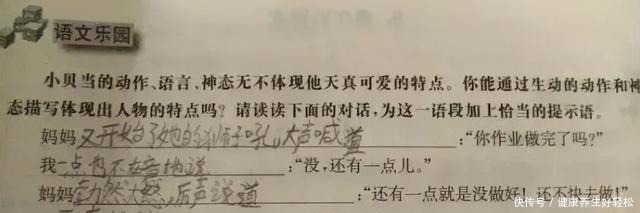 语文乐园
小贝当的动作、语言、神态无不体现他天真可爱的特点。你能通过生动的动作和神
态描写体现出人物的特点吗？请读读下面的对话，为这一语段加上恰当的提示语。
妈妈又开始了她的狮子吼，大声喊道：“你作业做完了吗？”
我一点也不在意地说：“没，还有一点儿。”
妈妈勃然大怒，厉声说道：“还有一点就是没做好！还不快去做！”
快传号/健康养生好轻松